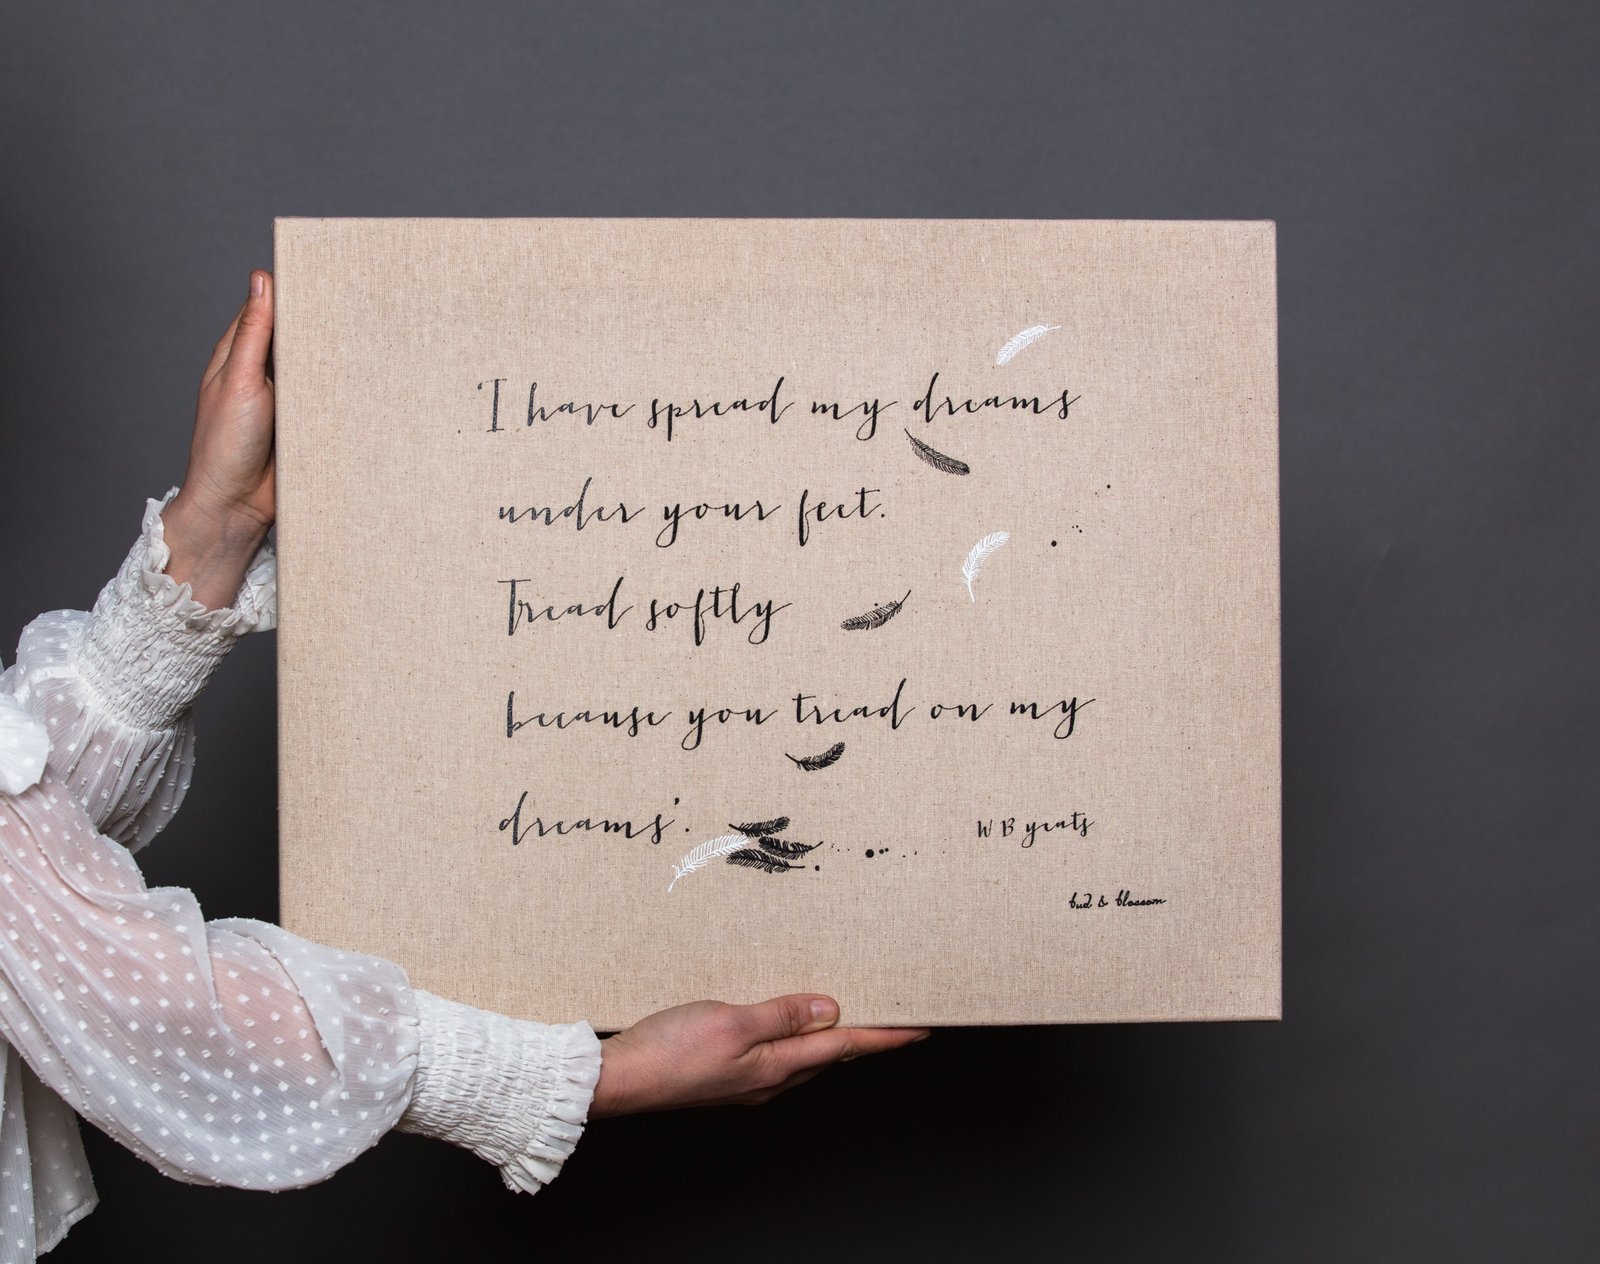 'I have spread my dreams
under your feet.
Tread softly
because you tread on my
dreams'.
W B yeats
bud & blossom